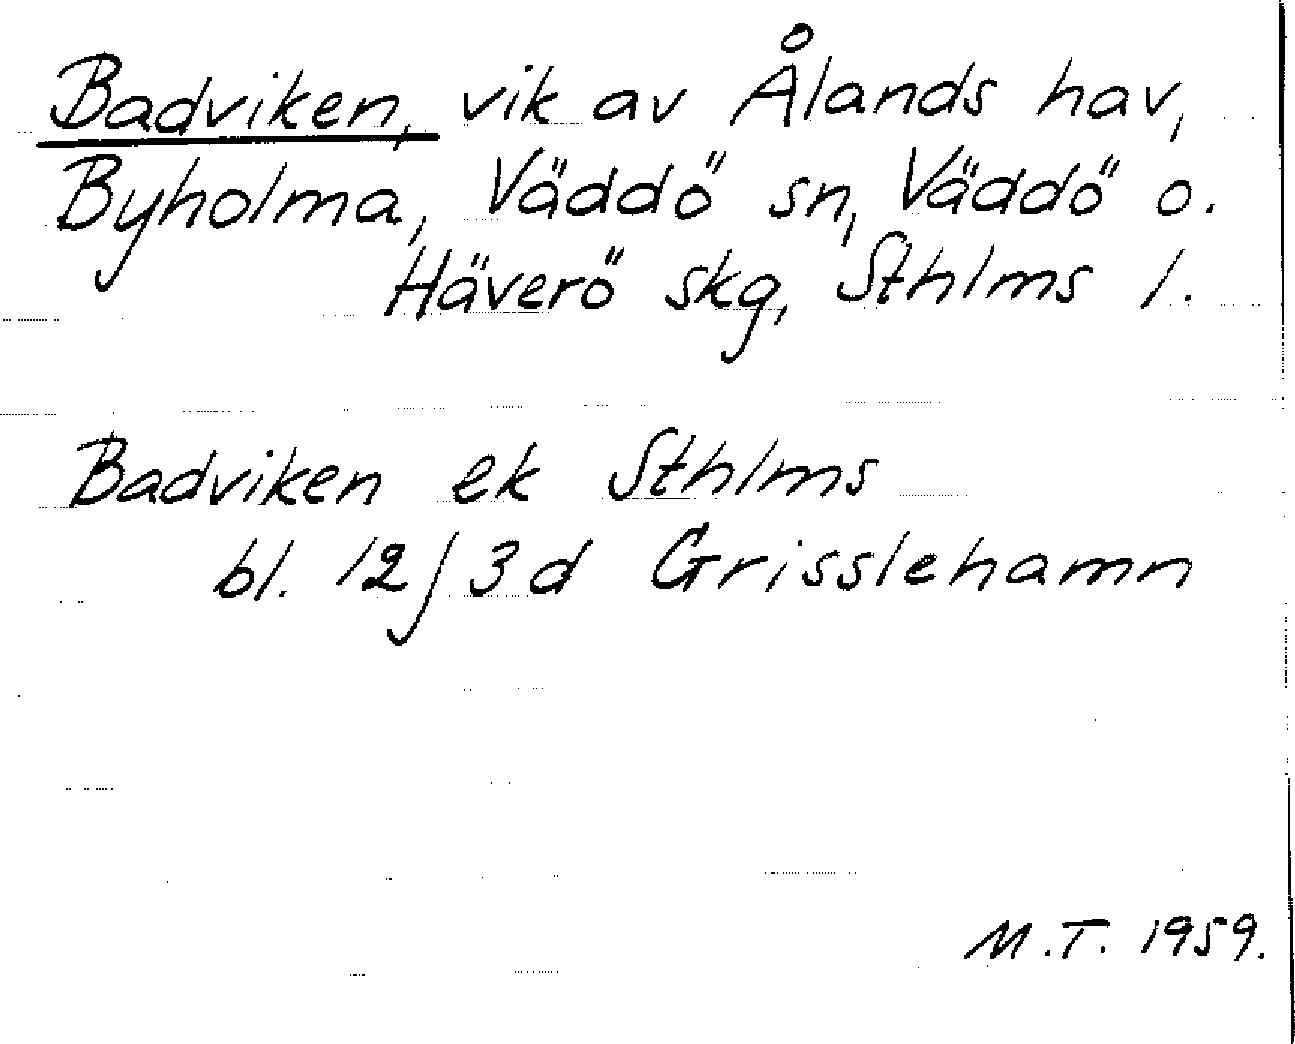 Badviken, vik av Ålands hav,
Byholma, Väddö sn, Väddö o.
Häverö skg, Sthlms l.
Badviken ek Sthlms
bl. 12 J 3 d Grisslehamn
M.T. 1959.